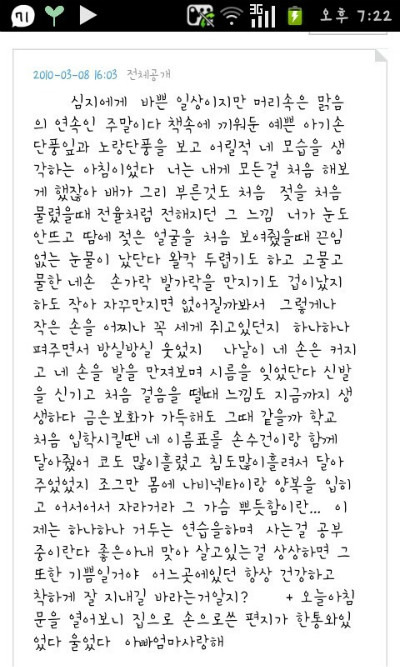 71 3G 오후 7:22
2010-03-08 16:03 전체공개
심지에게 바쁜 일상이지만 머리속은 맑음
의 연속인 주말이다 책속에 끼워둔 예쁜 아기손
단풍잎과 노랑단풍을 보고 어릴적 네 모습을 생
각하는 아침이었다 너는 내게 모든걸 처음 해보
게 했잖아 배가 그리 부른것도 처음 젖을 처음
물렸을때 전율처럼 전해지던 그 느낌 너가 눈도
안뜨고 땀에 젖은 얼굴을 처음 보여줬을때 끈임
없는 눈물이 났단다 왈칵 두렵기도 하고 고물고
물한 네손 손가락 발가락을 만지기도 겁이났지
하도 작아 자꾸만지면 없어질까봐서 그렇게나
작은 손을 어찌나 꼭 세게 쥐고있던지 하나하나
펴주면서 방실방실 웃었지 나날이 네 손은 커지
고 네 손을 발을 만져보며 시름을 잊었단다 신발
을 신기고 처음 걸음을 뗄때 느낌도 지금까지 생
생하다 금은보화가 가득해도 그때 같을까 학교
처음 입학시킬땐 네 이름표를 손수건이랑 함께
달아줬어 코도 많이흘렸고 침도많이흘려서 달아
주었었지 조그만 몸에 나비넥타이랑 양복을 입히
고 어서어서 자라거라 그 가슴 뿌듯함이란... 이
제는 하나하나 거두는 연습을하며 사는걸 공부
중이란다 좋은아내 맞아 살고있는걸 상상하면 그
또한 기쁨일거야 어느곳에있던 항상 건강하고
착하게 잘 지내길 바라는거알지? + 오늘아침
문을 열어보니 집으로 손으로쓴 편지가 한통와있
었다 울었다 아빠엄마사랑해